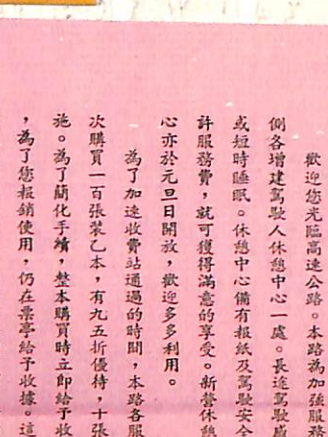 歡迎您光臨高速公路。本路為加強服務
側各增建駕駛人休憩中心一處。長途駕駛感
或短時睡眠。休憩中心備有報紙及駕駛安全
許服務費，就可獲得滿意的享受。新營休憩
心亦於元旦日開放，歡迎多多利用。
為了加速收費站通過的時間，本路各服
次購買一百張裝乙本，有九五折優待，十張
施。為了簡化手續，整本購買時立即給予收
，為了您報銷使用，仍在票亭給予收據。這